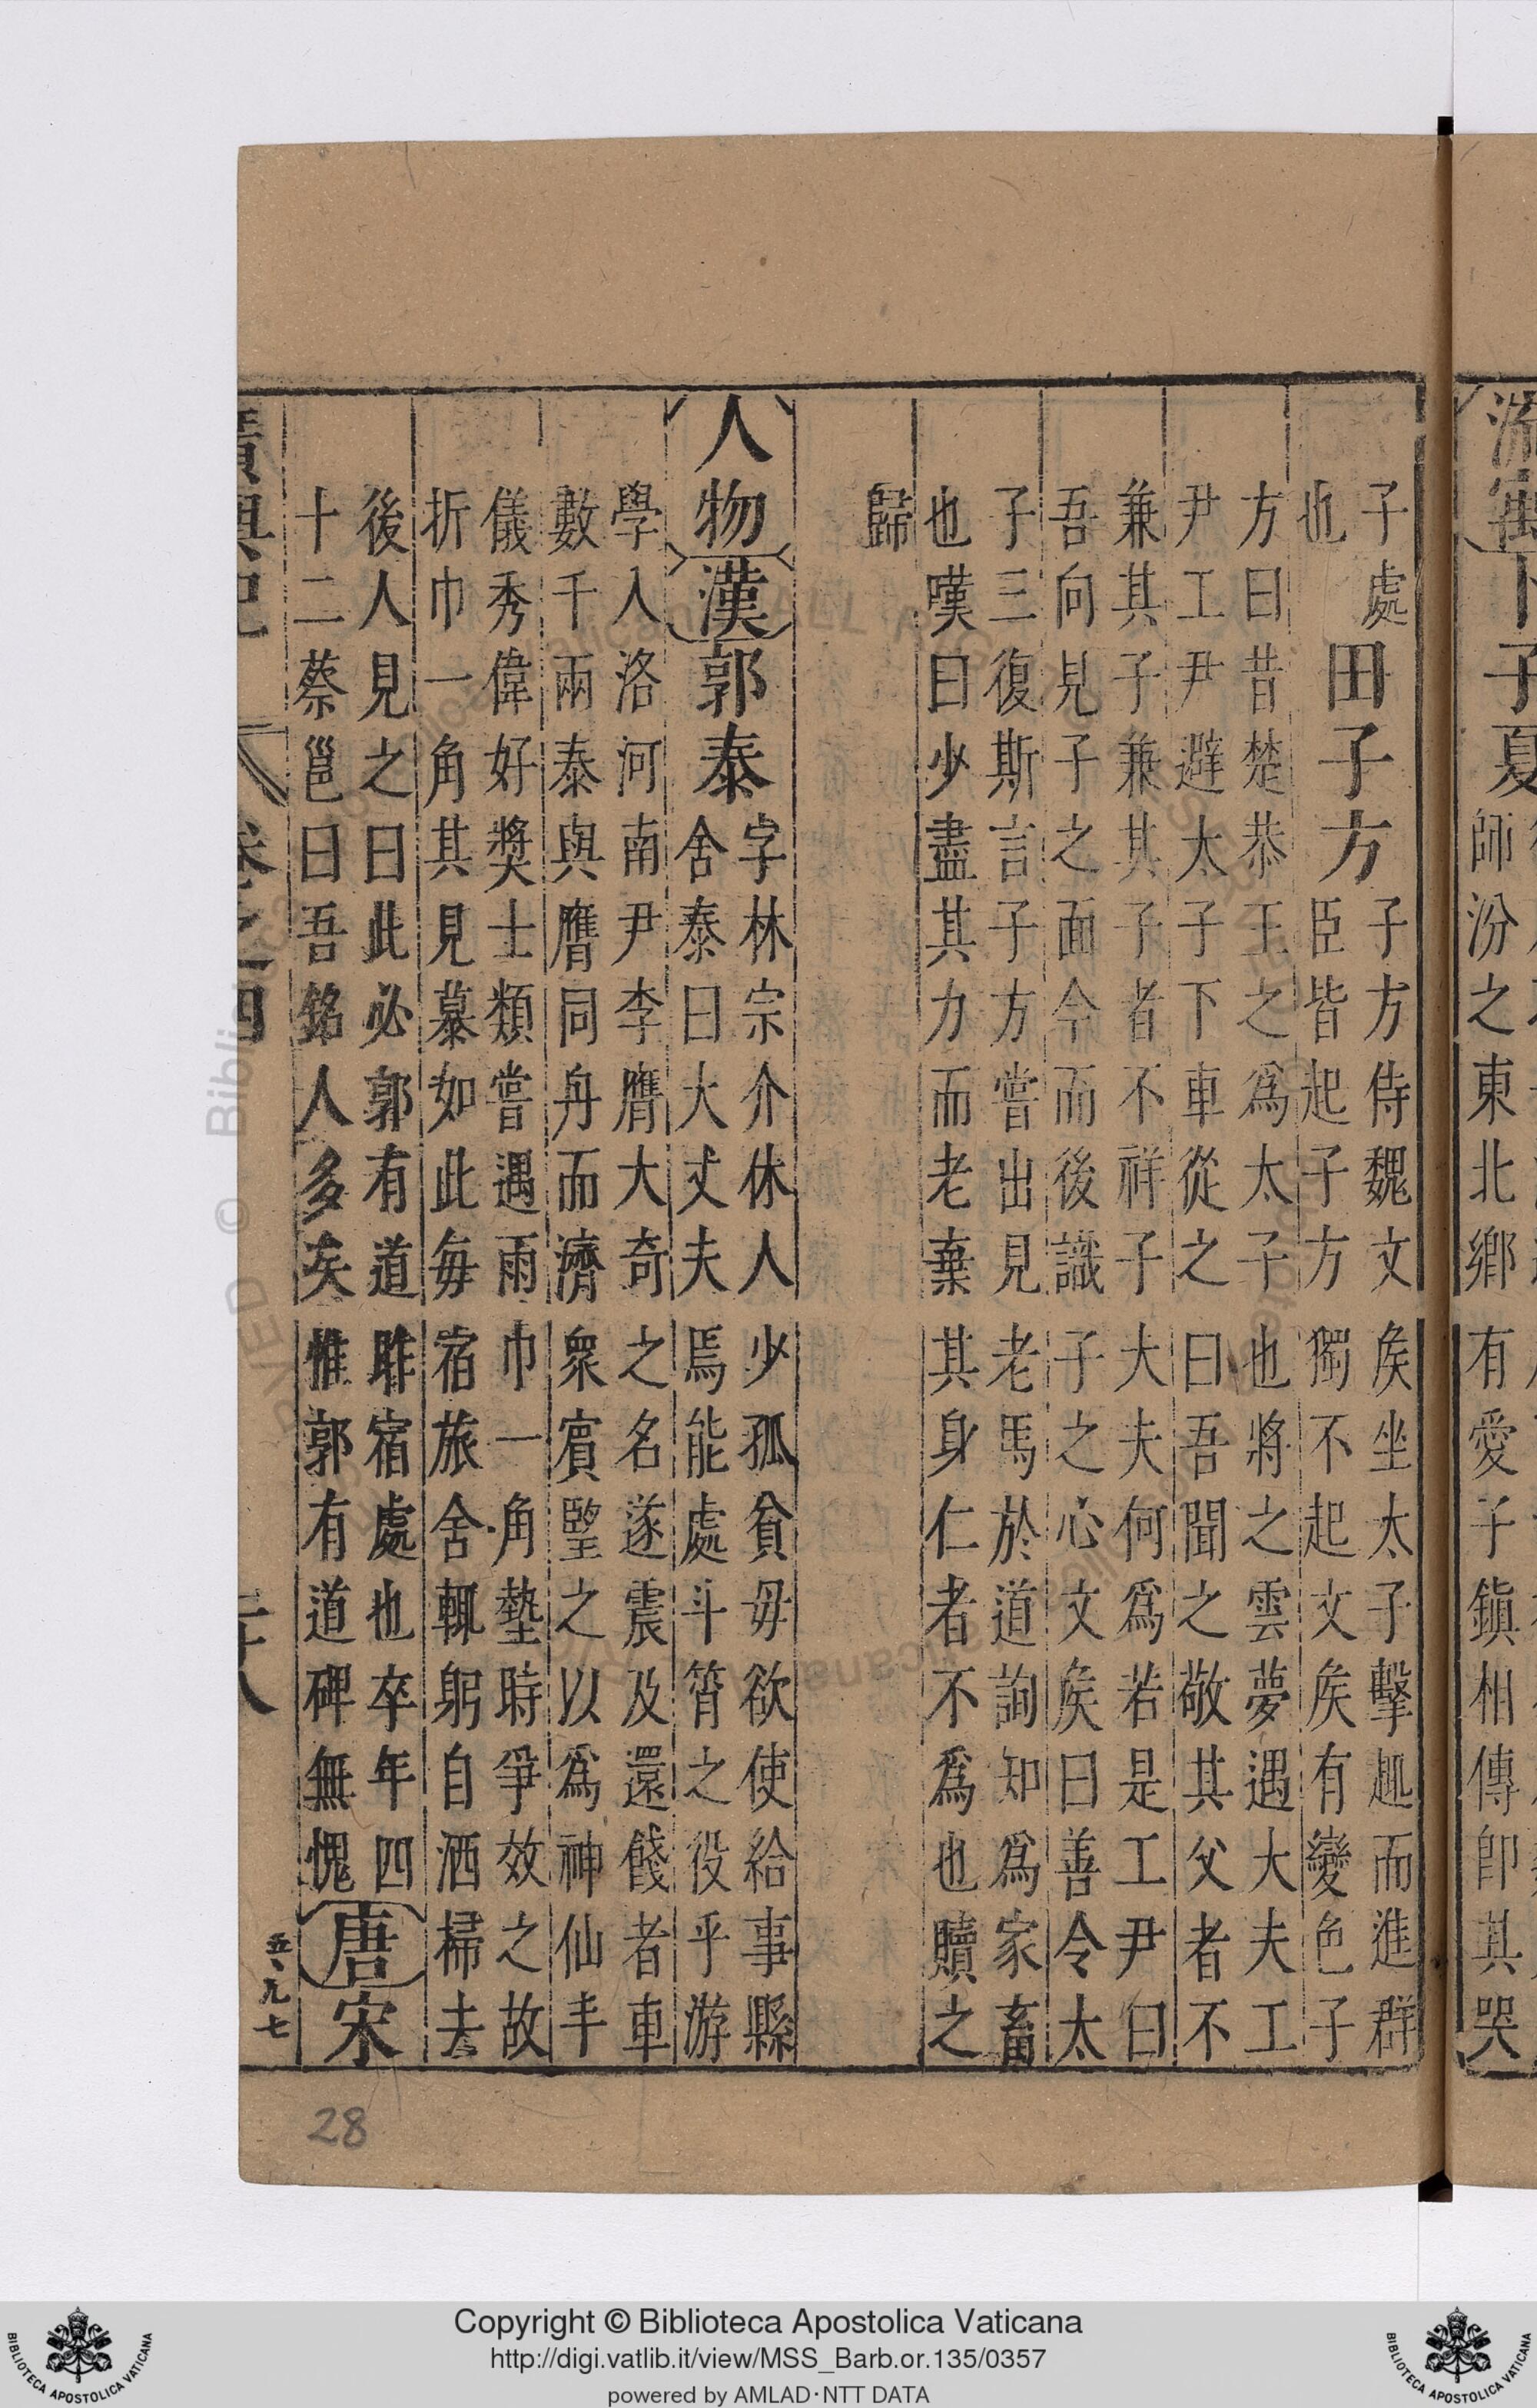 流寓卜子夏
師汾之東北鄉有愛子鎮相傳即其哭
子處
也
田子方
子方侍魏文矦坐太子擊趨而進群
臣皆起子方獨不起文矦有變色子
方曰昔楚恭王之爲太子也將之雲夢遇大夫工
尹工尹避太子下車從之曰吾聞之敬其父者不
兼其子兼其子者不祥子大夫何爲若是工尹曰
吾向見子之面今而後識子之心文矦曰善令太
子三復斯言子方嘗出見老馬於道詢知爲家畜
也嘆曰少盡其力而老棄其身仁者不爲也贖之
歸
人物漢郭泰
字林宗介休人少孤貧毋欲使給事縣
舍泰曰大丈夫焉能處斗筲之役乎游
學入洛河南尹李膺大奇之名遂震及還餞者車
數千兩泰與膺同舟而濟衆賓望之以爲神仙丰
儀秀偉好獎士類嘗遇雨巾一角墊時爭效之故
折巾一角其見慕如此每宿旅舍輒躬自洒掃去
後人見之曰此必郭有道昨宿處也卒年四
十二蔡邕曰吾銘人多矣惟郭有道碑無愧
唐宋
廣輿記 卷之四 二十八
五、九七
28
Copyright © Biblioteca Apostolica Vaticana
http://digi.vatlib.it/view/MSS_Barb.or.135/0357
powered by AMLAD・NTT DATA
BIBLIOTECA APOSTOLICA VATICANA
BIBLIOTECA APOSTOLICA VATICANA